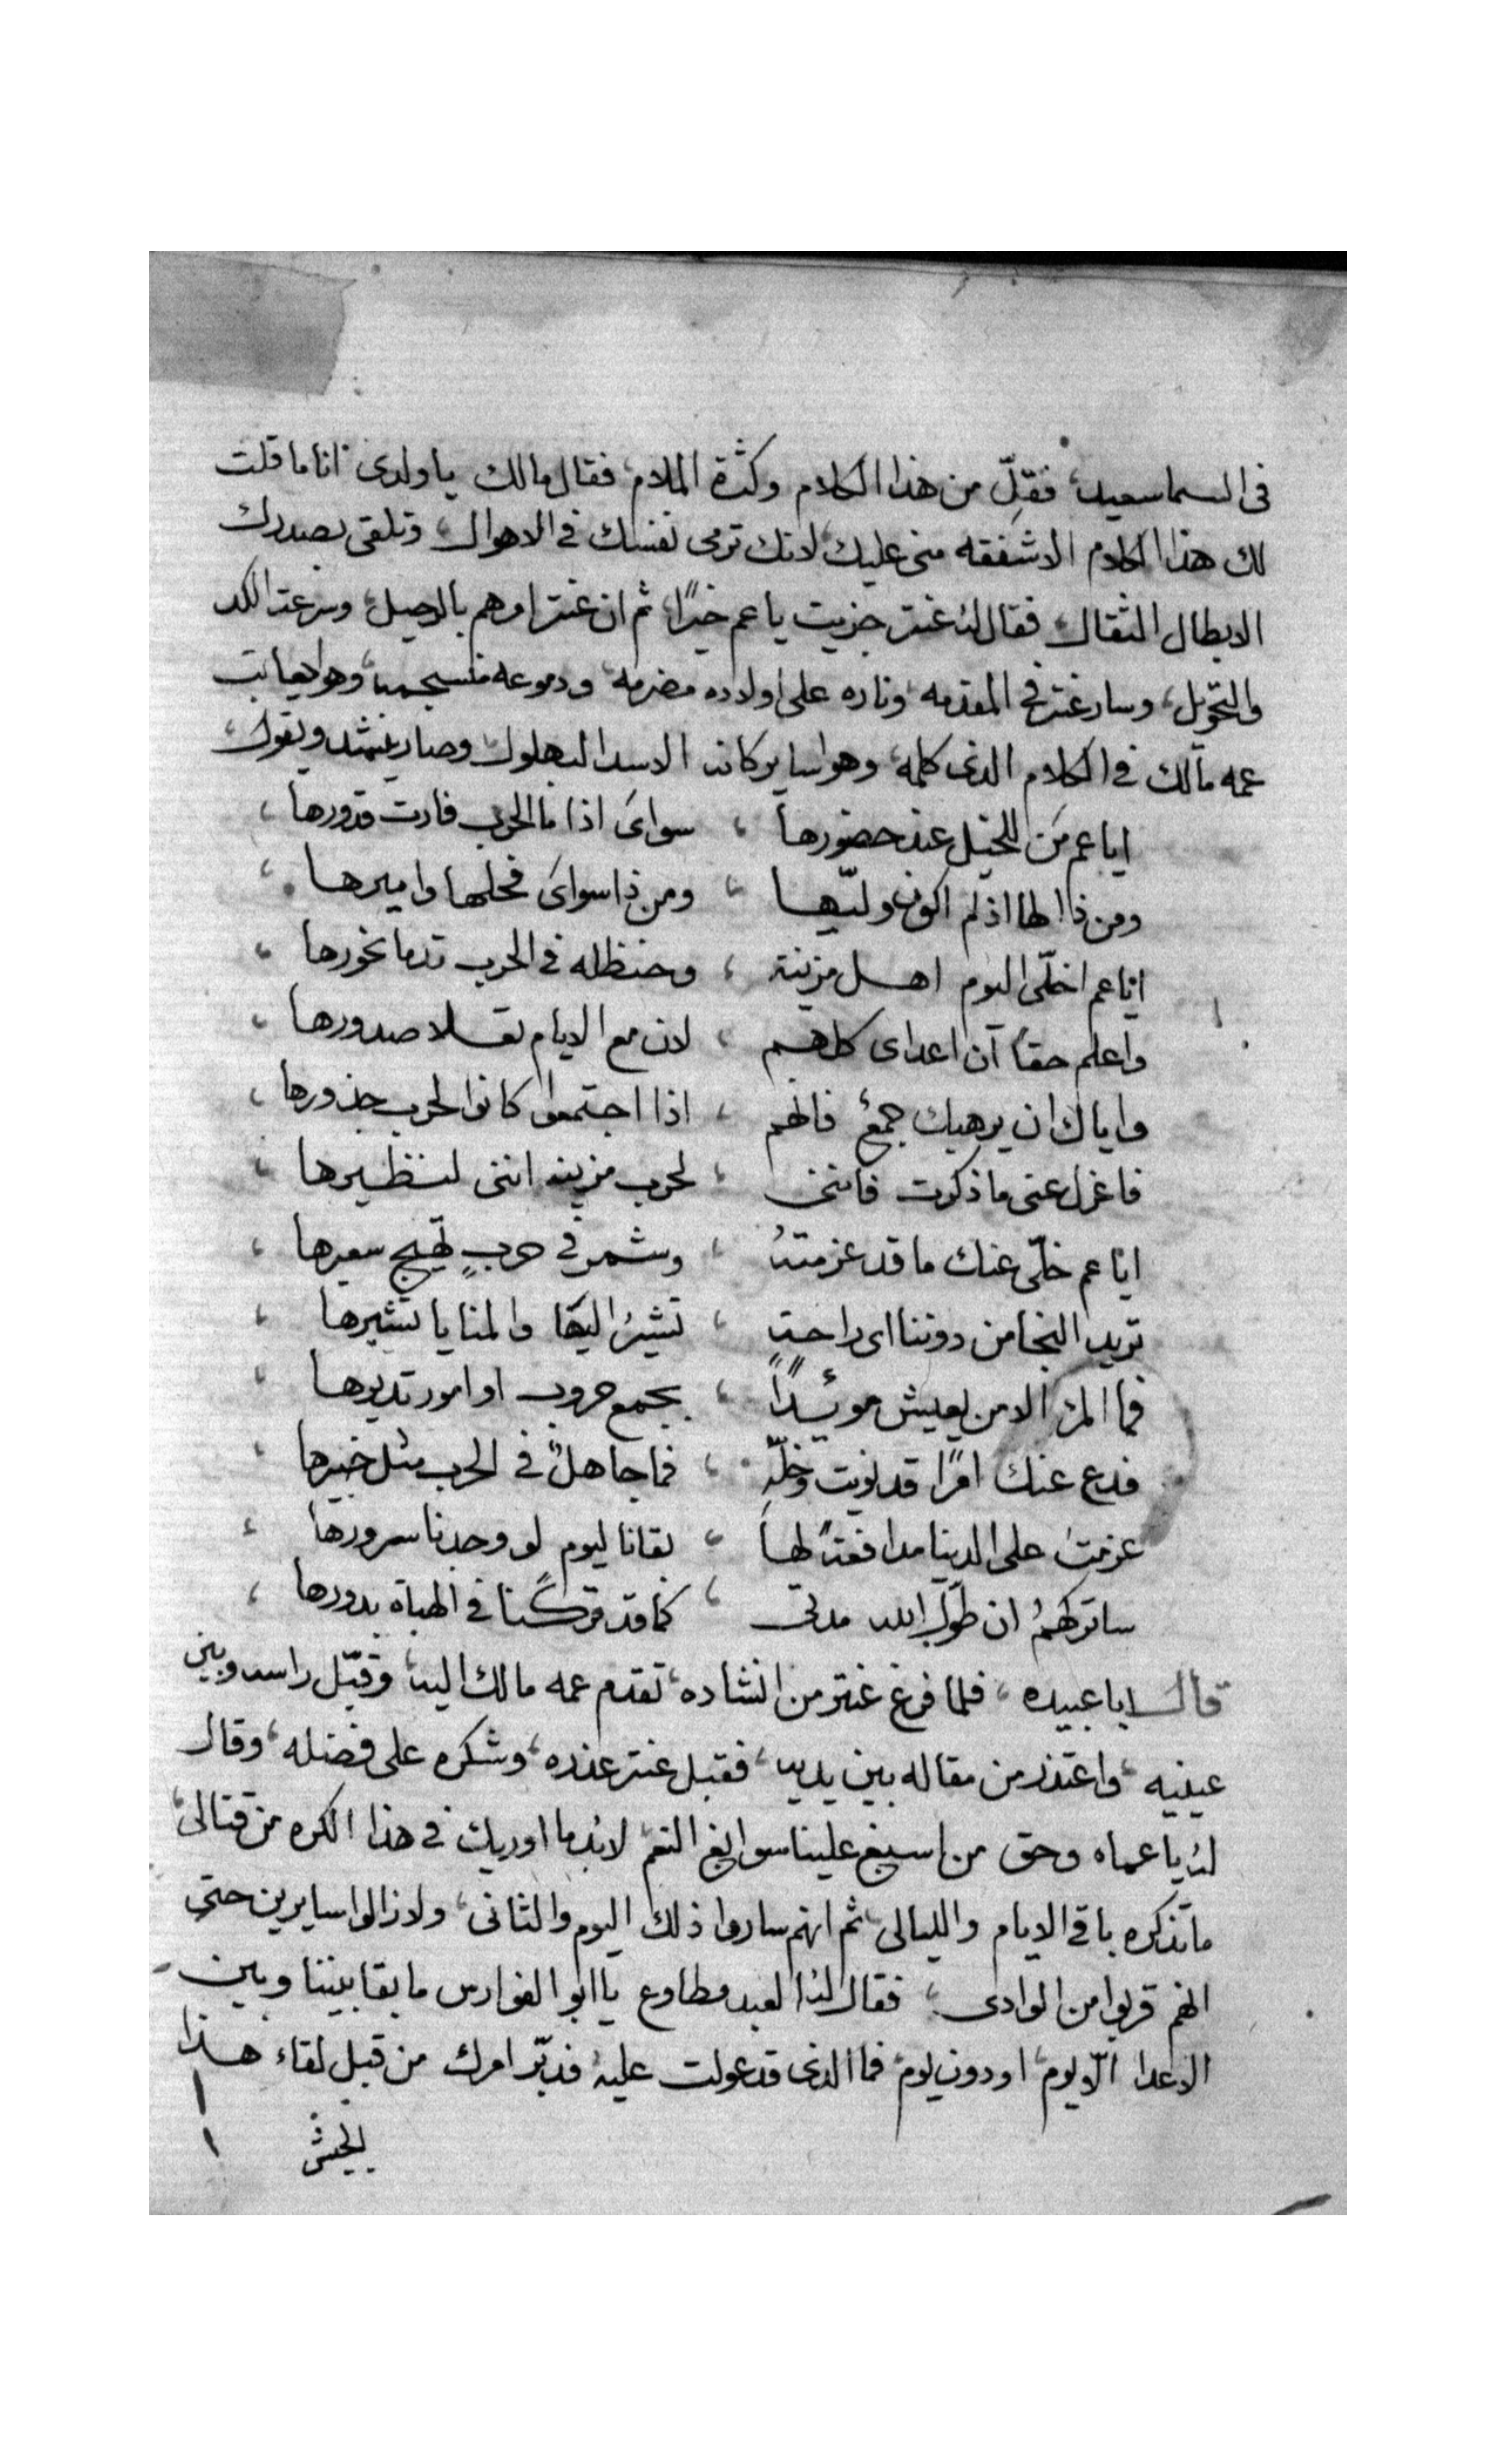 فى السما سعيد، فقلّ من هذا الكلام وكثرة الملام، فقال مالك يا ولدى انا ما قلت
لك هذا الكلام الا شفقه منى عليك، لانك ترمى نفسك فى الاهوال، وتلقى بصدرك
الابطال الثقال، فقال له عنتر جزيت يا عم خيرًا، ثم ان عنتر امرهم بالرحيل، وسرعت الكد
والتحويل، وسار عنتر فى المقدمه، وناره على اولاده مضرمه، ودموعه منسجمه، وهو ايعاتب
عمه مالك فى الكلام الذى كلمه، وهو اساير كانه الاسد البهلول، وصار ينشد ويقول،
ايا عم من للخيل عند حضورها ، سواى اذا ما الحرب فارت قدورها ،
ومن ذا لها اذ لم اكون وليّها ، ومن ذا سواى فحلها واميرها ،
ايا عم اخلّى اليوم اهل مزينة ، وحنظله فى الحرب تدما نحورها ،
واعلم حقا ان اعداى كلهم ، لان مع الايام تغلا صدورها ،
واياك ان يرهبك جمعٌ فانهم ، اذا اجتمعوا كانوا لحرب جذورها ،
فاعزل عنى ما ذكرت فاننى ، لحرب مزينه اننى لنظيرها ،
ايا عم خلّى عنك ما قد عزمتهُ ، وشمر فى حربٍ تهيج سعيرها ،
تريد النجا من دوننا اى راحةٍ ، تشيرُ اليها والمنايا تشيرها ،
فما المرُ الا من يعيش مويّدًا ، بجمع حروب او امور تديرها ،
فدع عنك امرًا قد نويت وخلّهِ ، فما جاهلٌ فى الحرب مثل خبيرها ،
عزمت على الدينا مدافعةً لها ، بقانا ليوم لو وجدنا سرورها ،
ساتركهمُ ان طوّل الله مدتى ، كما قد تركنا فى الهباة بدورها ،
قال ابا عبيده، فلما فرغ عنتر من انشاده، تقدم عمه مالك اليه، وقبّل راسه وبين
عينيه، واعتذر من مقاله بين يديه، فقبل عنتر عذره، وشكره على فضله، وقال
له يا عماه وحق من اسبغ علينا سوابغ النعم لابد ما اوريك فى هذا الكره من قتالى،
ما تذكره باقى الايام والليالى، ثم انهم ساروا ذلك اليوم والثانى، ولا زالوا سايرين حتى
انهم قربوا من الوادى، فقال له العبد مطاوع يا ابو الفوارس ما بقا بيننا وبين
الاعدا الّا يوم، او دون يوم، فما الذى قد عولت عليه، فدبّر امرك من قبل لقاء هذا
الجيش